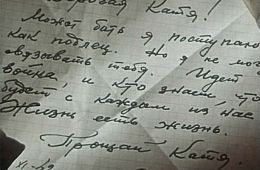 Катя!
Может быть я поступаю
как подлец. Но я не могу
обязывать тебя. Идет
война, и кто знает что
будет с каждым из нас
Жизнь есть жизнь.
Прощай Катя.